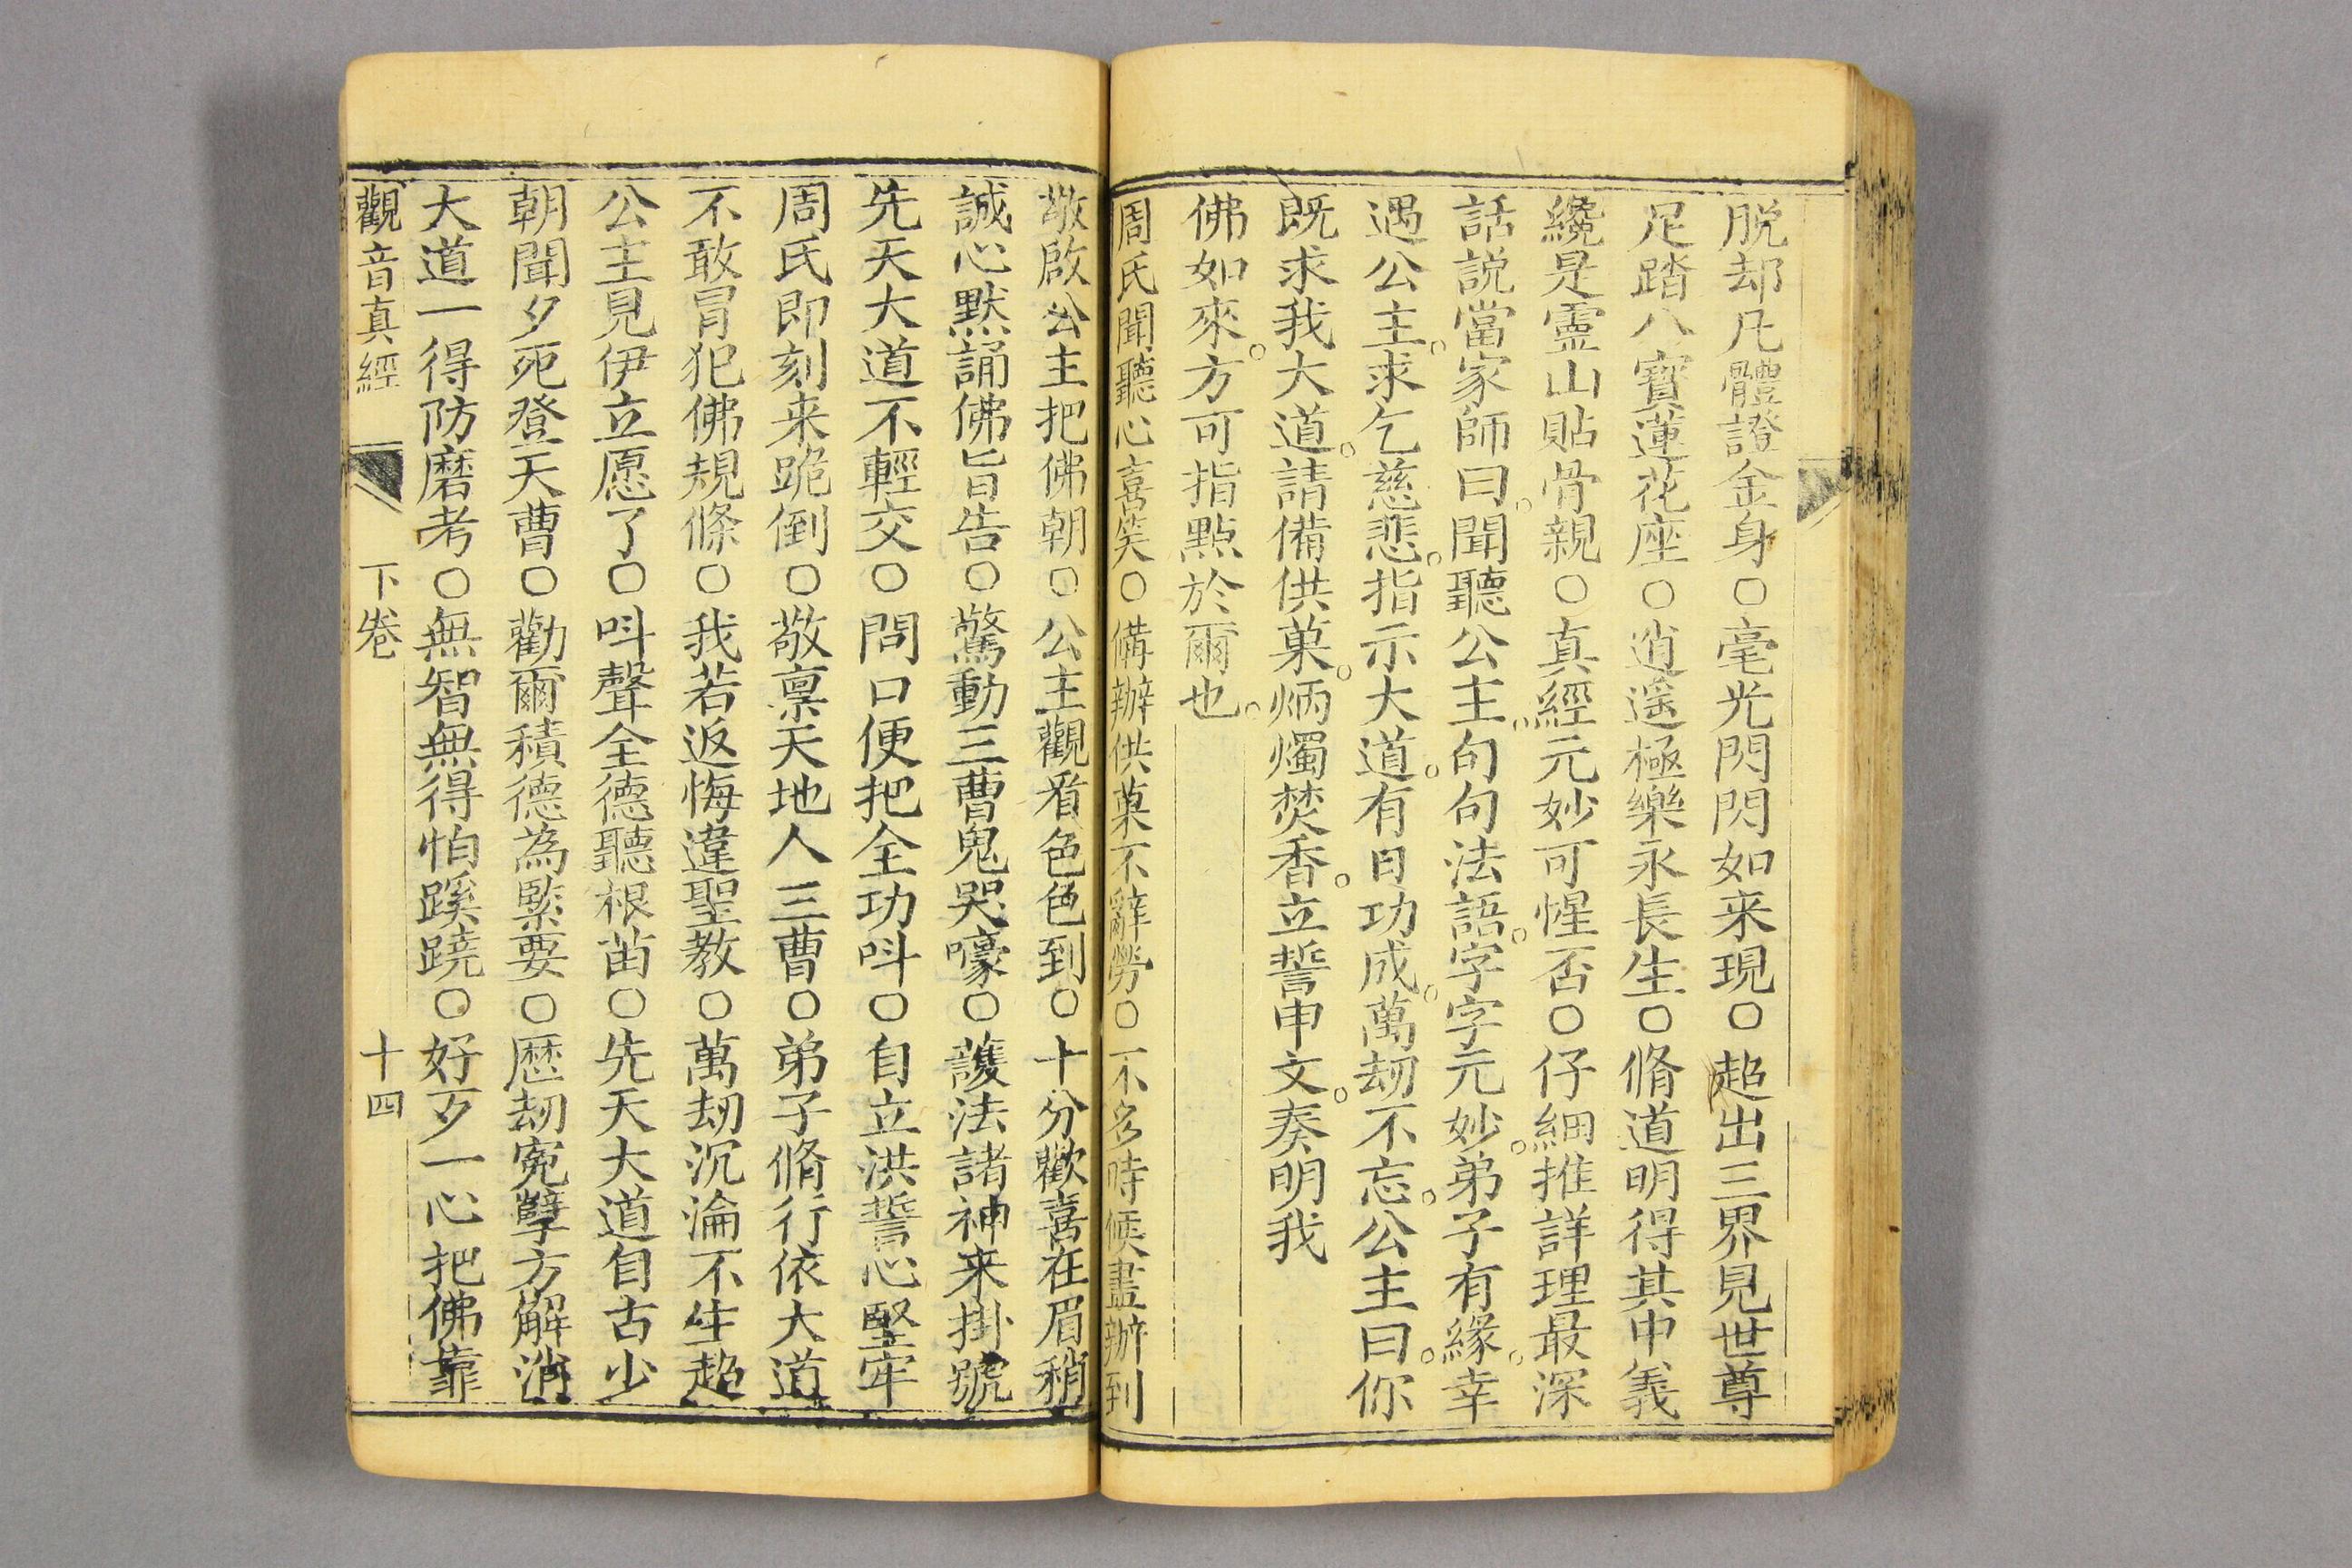 脱却凡體證金身○毫光閃閃如来現○超出三界見世尊
足踏八寶蓮花座○逍遥極樂永長生○脩道明得其中義
纔是靈山貼骨親○真經元妙可惺否○仔細推詳理最深
話説當家師曰。聞聽公主。句句法語。字字元妙。弟子有緣。幸
遇公主。求乞慈悲。指示大道。有日功成。萬刼不忘。公主曰。你
既求我大道。請備供菓。炳燭焚香。立誓申文。奏明我
佛如來。方可指點於爾也。
周氏聞聽心喜笑○備辦供菓不辭勞○不多時候盡辦到
敬啟公主把佛朝○公主觀看色色到○十分歡喜在眉稍
誠心黙誦佛旨告○驚動三曹鬼哭嚎○護法諸神来掛號
先天大道不輕交○問口便把全功呌○自立洪誓心堅牢
周氏即刻来跪倒○敬禀天地人三曹○弟子脩行依大道
不敢冐犯佛規條○我若返悔違聖教○萬刼沉淪不生超
公主見伊立愿了○呌聲全德聽根苗○先天大道自古少
朝聞夕死登天曹○勸爾積德為緊要○歴刼寃孽方解消
大道一得防磨考○無智無得怕蹊蹺○好歹一心把佛靠
觀音真經 下卷 十四